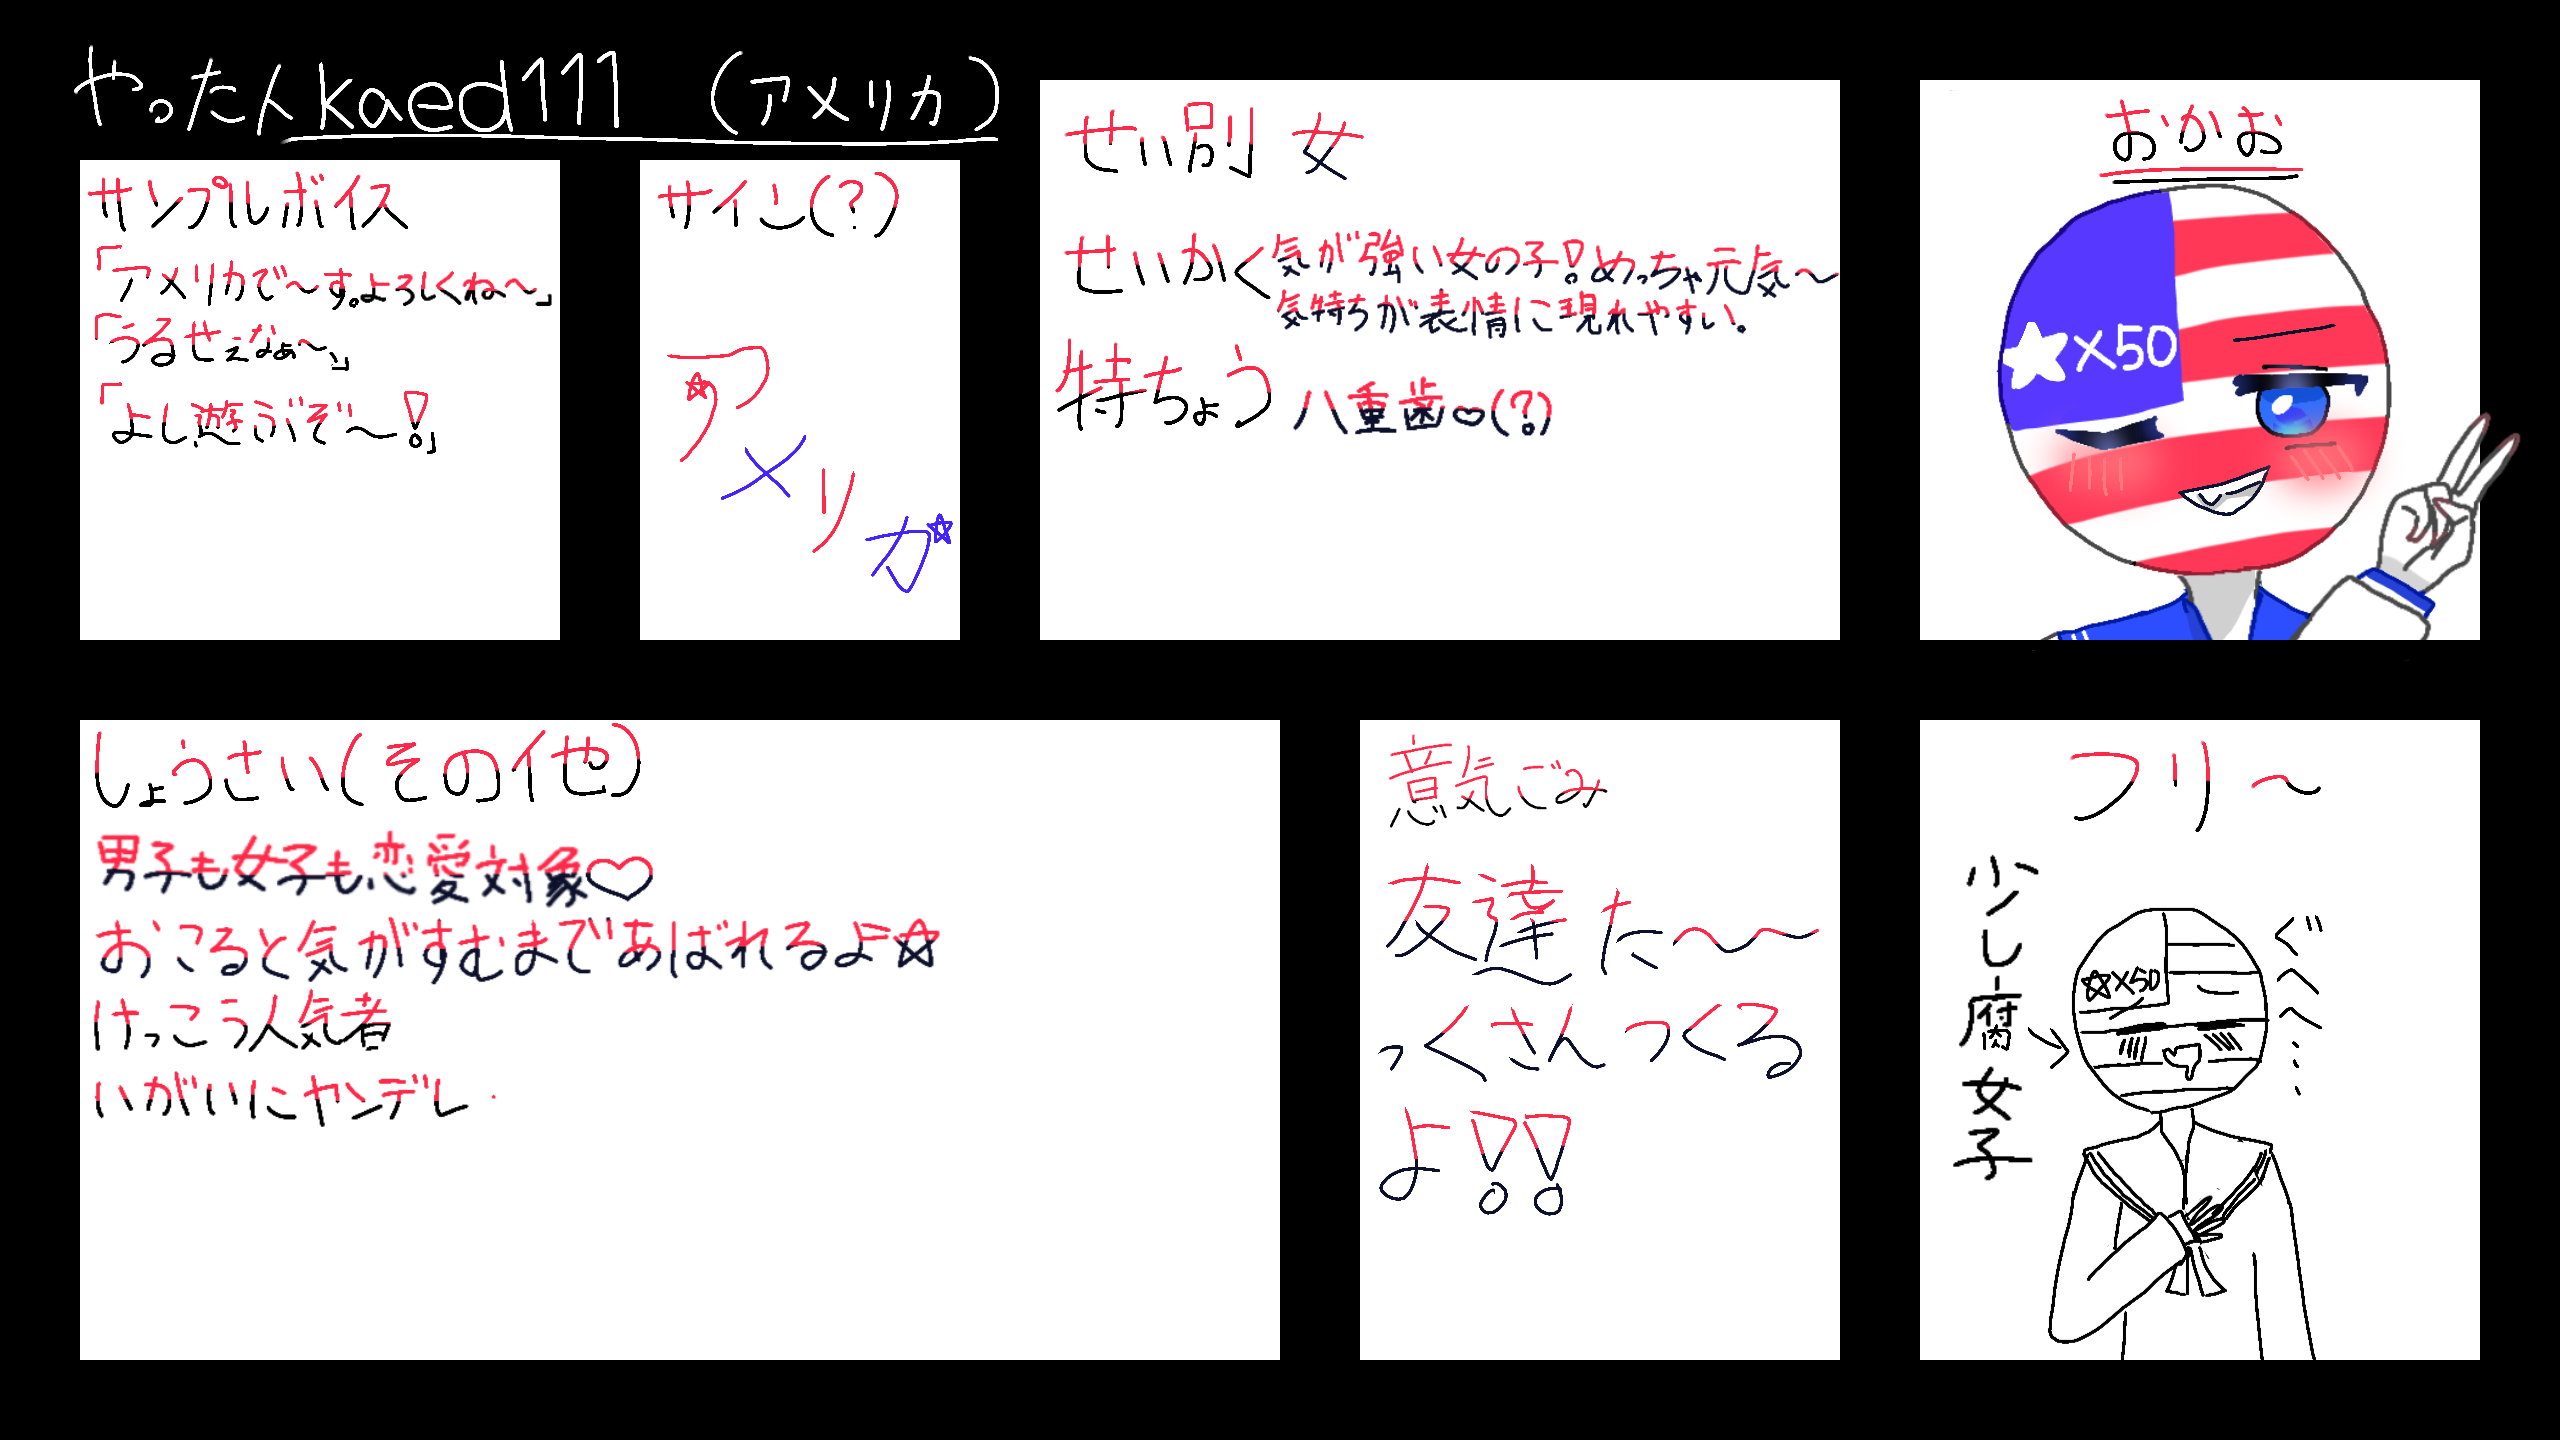 やったんkaed111 (アメリカ)
サンプルボイス
「アメリカで〜す。よろしくね〜」
「うるせぇなぁ〜、」
「よし遊ぶぞ〜!」
サイン(?)
アメリカ
せい別 女
せいかく 気が強い女の子!めっちゃ元気〜
気持ちが表情に現れやすい。
特ちょう 八重歯♡(?)
おかお
★×50
しょうさい(その他)
男子も女子も恋愛対象♡
おこると気がすむまであばれるよ☆
けっこう人気者
いがいにヤンデレ
意気ごみ
友達た〜〜
っくさんつくる
よ!!
フリ〜
少し腐女子
☆×50
ぐへへ...